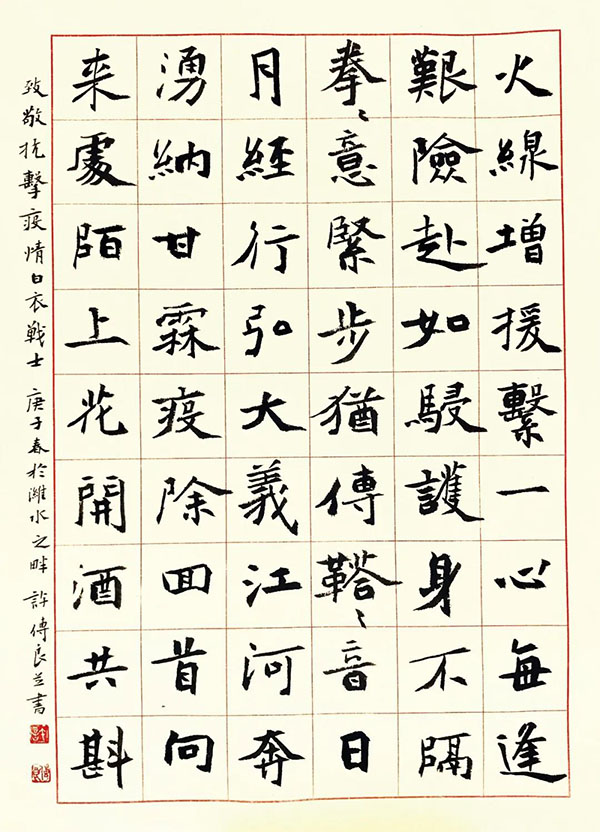 火線增援繫一心每逢
艱險赴如駸護身不隔
拳〻意緊步猶傳鞳〻音日
月經行弘大義江河奔
湧納甘霖疫除回首向
来處陌上花開酒共斟
致敬抗擊疫情白衣戰士 庚子春於濰水之畔 許傳良並書